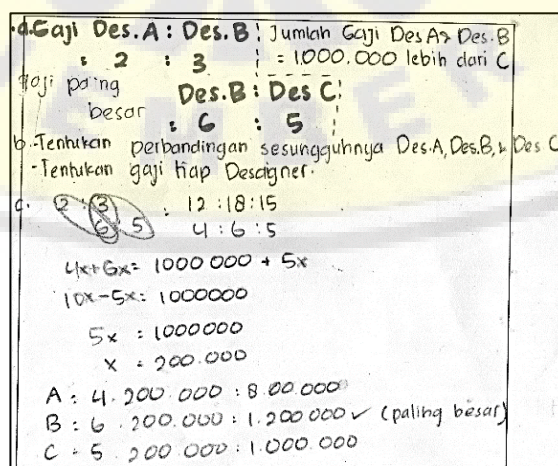 a. Gaji Des.A : Des.B Jumlah Gaji Des A & Des.B
: 2 : 3 = 1.000.000 lebih dari C
gaji paing besar Des.B : Des C
: 6 : 5
b. -Tentukan perbandingan sesungguhnya Des.A, Des.B, & Des C
-Tentukan gaji tiap Desaigner.
c. 2 : 3 : 12 : 18 : 15
6 5 4 : 6 : 5
4x+6x = 1000 000 + 5x
10x-5x = 1000000
5x = 1000000
x = 200.000
A : 4. 200 000 : 8 00.000
B : 6 . 200.000 : 1.200 000 ✓ (paling besar)
C = 5 200 000 : 1.000.000